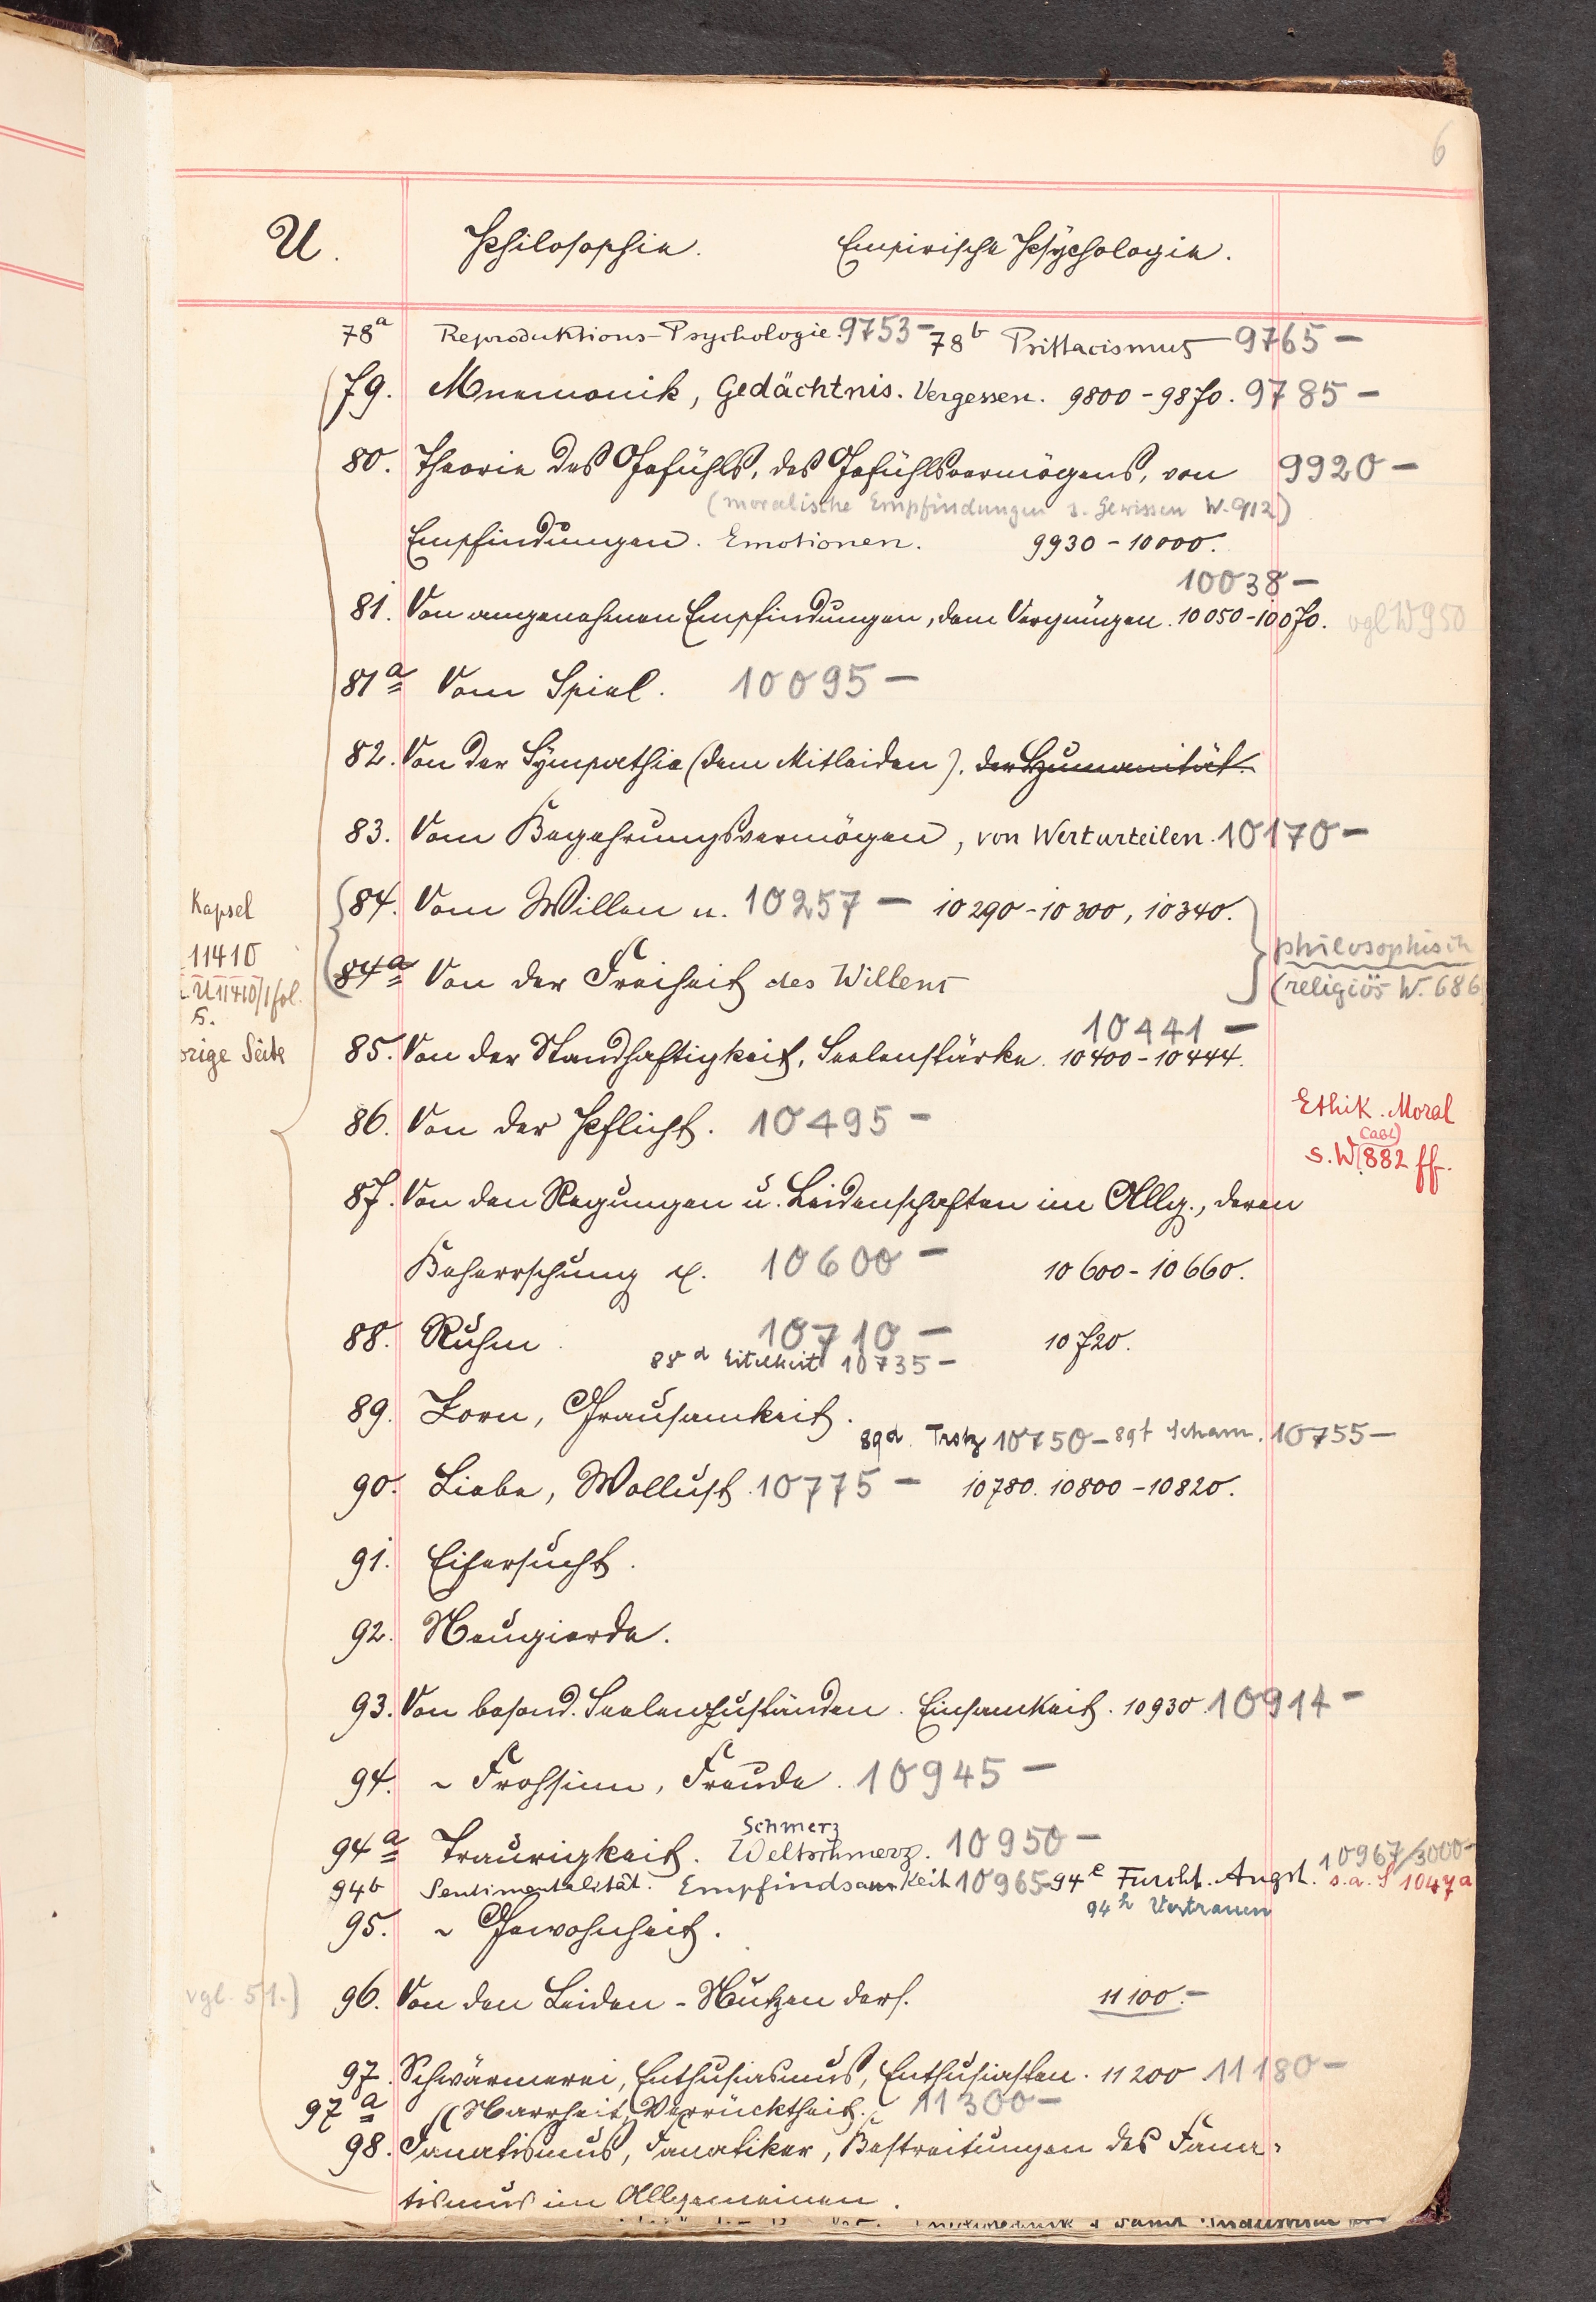 6
U. Philosophie. Empirische Psychologie.
78a Reproduktions-Psychologie. 9753- 78b Psittacismus 9765-
79. Mnemonik, Gedächtnis. Vergessen. 9800-9870. 9785-
80. Theorie des Gefühls, des Gefühlsvermögens, von 9920-
(moralische Empfindungen s. Gewissen W. 912)
Empfindungen. Emotionen. 9930-10000.
10038-
81. Von angenehmen Empfindungen, dem Vergnügen. 10050-10070. vgl W950
81a Vom Spiel. 10095-
82. Von der Sympathie (dem Mitleiden). der Humanität.
83. Vom Begehrungsvermögen, von Werturteilen. 10170-
Kapsel
84. Vom Willen u. 10257- 10290-10300, 10340.
11410
philosophisch
84a Von der Freiheit des Willens
(religiös W. 686
U11410/1 fol.
s.
10441-
orige Seite
85. Von der Standhaftigkeit, Seelenstärke. 10400-10444.
86. Von der Pflicht. 10495-
Ethik. Moral
s. W 882 ff.
87. Von den Regungen u. Leidenschaften im Allg., deren
Beherrschung etc. 10600- 10600-10660.
88. Ruhm. 10710- 10720.
88d Eitelkeit 10735-
89. Zorn, Grausamkeit.
89d. Trotz 10750- 89f Scham. 10755-
90. Liebe, Wollust. 10775- 10780. 10800-10820.
91. Eifersucht.
92. Neugierde.
93. Von besond. Seelenzuständen. Einsamkeit. 10930. 10914-
94. ~ Frohsinn, Freude. 10945-
Schmerz
94a Traurigkeit. Weltschmerz. 10950-
10967/3000-
94b Sentimentalität. Empfindsamkeit 10965- 94e Furcht. Angst. s.a. S 1047a
94h Vertrauen
95. ~ Gewohnheit.
vgl. 51.)
96. Von den Leiden - Nutzen ders. 11100.-
97. Schwärmerei, Enthusiasmus, Enthusiasten. 11200 11180-
97a (Narrheit, Verrücktheit. 11300-
98. Fanatismus, Fanatiker, Bestreitungen des Fana-
tismus im Allgemeinen.